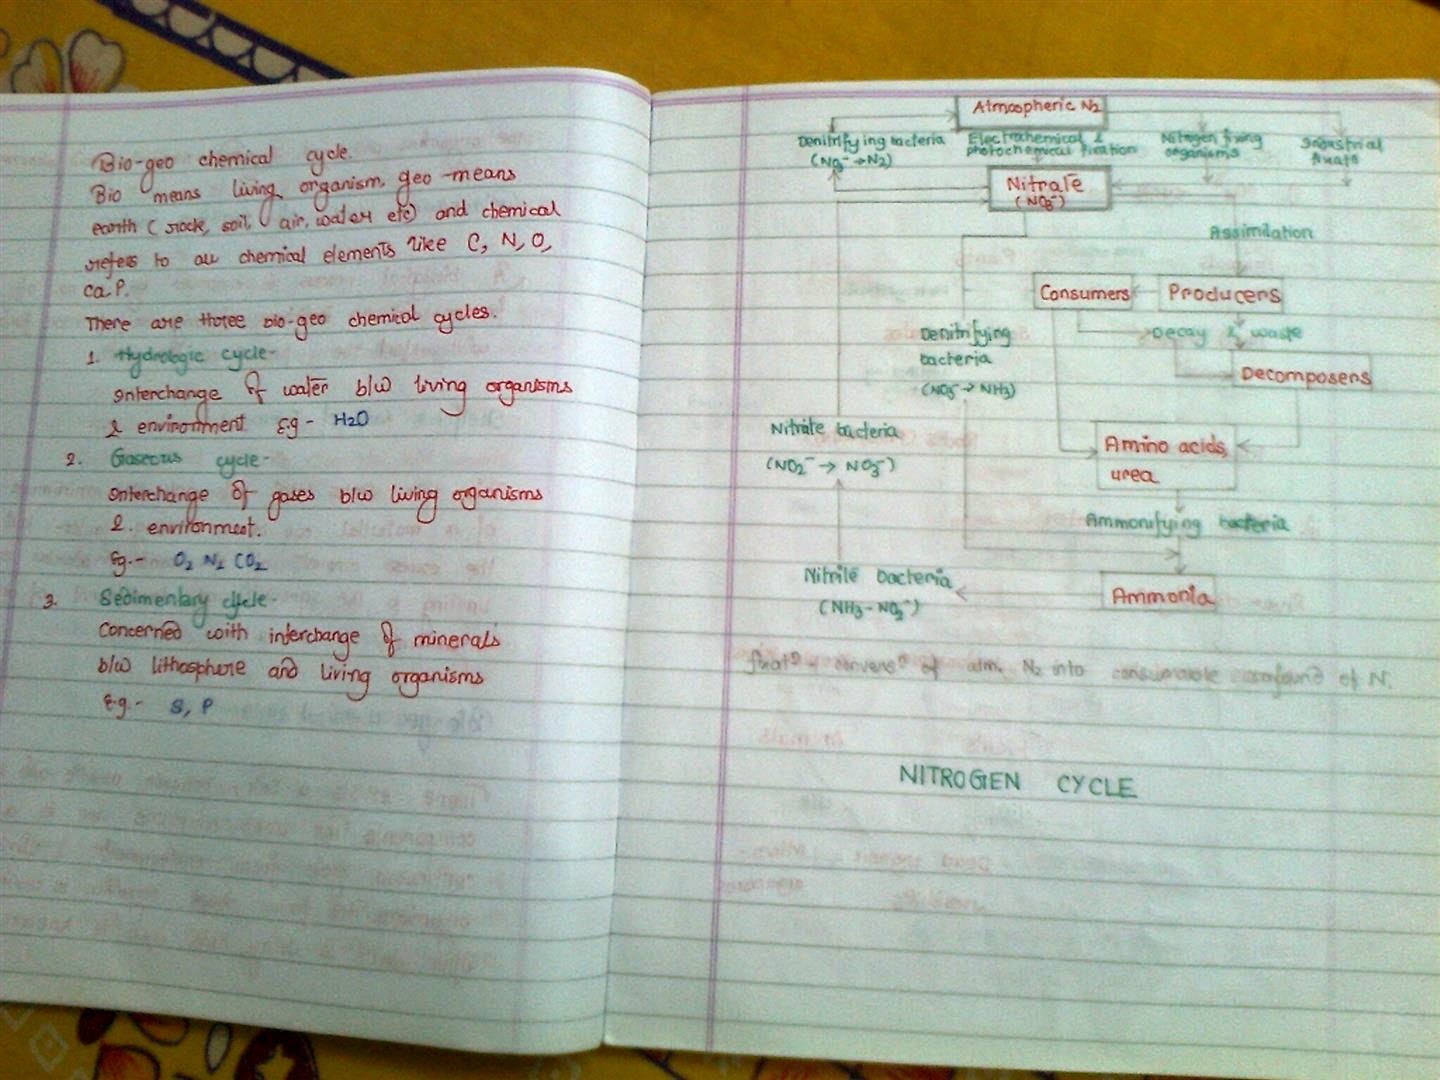 Bio-geo chemical cycle.
Bio means living organism, geo-means
earth (rock, soil, air, water etc) and chemical
refers to all chemical elements like C, N, O,
Ca P.
There are three bio-geo chemical cycles.
1. Hydrologic cycle-
Interchange of water b/w living organisms
& environment E.g - H2O
2. Gaseous cycle-
Interchange of gases b/w living organisms
& environment.
Eg.- O2 N2 CO2
3. Sedimentary cycle-
Concerned with interchange of minerals
b/w lithosphere and living organisms
E.g.- S, P
Atmospheric N2
Denitrifying bacteria
(NO3⁻→N2)
Electrochemical &
photochemical fixation
Nitrogen fixing
organisms
Industrial
fixatn
Nitrate
(NO3⁻)
Assimilation
Consumers
Producers
Decay & waste
Decomposers
Denitrifying
bacteria
(NO3⁻→NH3)
Nitrate bacteria
(NO2⁻→NO3⁻)
Amino acids,
urea
Ammonifying bacteria
Nitrite bacteria
(NH3-NO2⁻)
Ammonia
fixatn - conversn of atm. N2 into consumable compound of N.
NITROGEN CYCLE